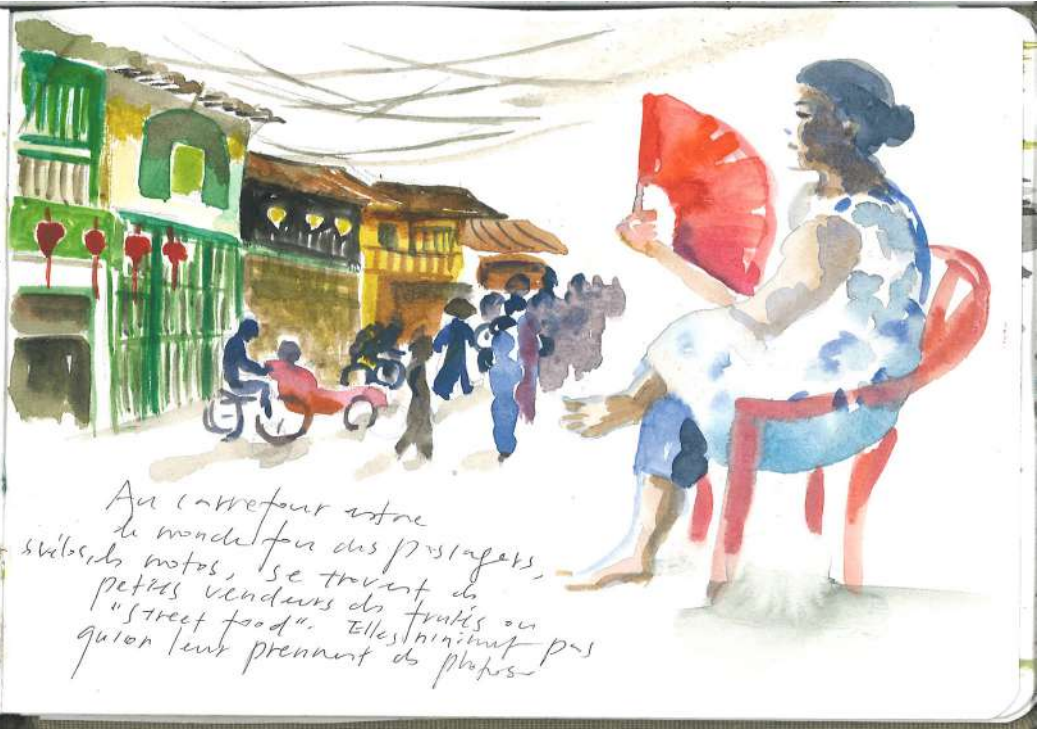 Au carrefour entre
le monde fou des passagers,
vélos, des motos, se trouvent de
petits vendeurs de fruits ou
"street food". Elles n'aiment pas
qu'on leur prennent des photos